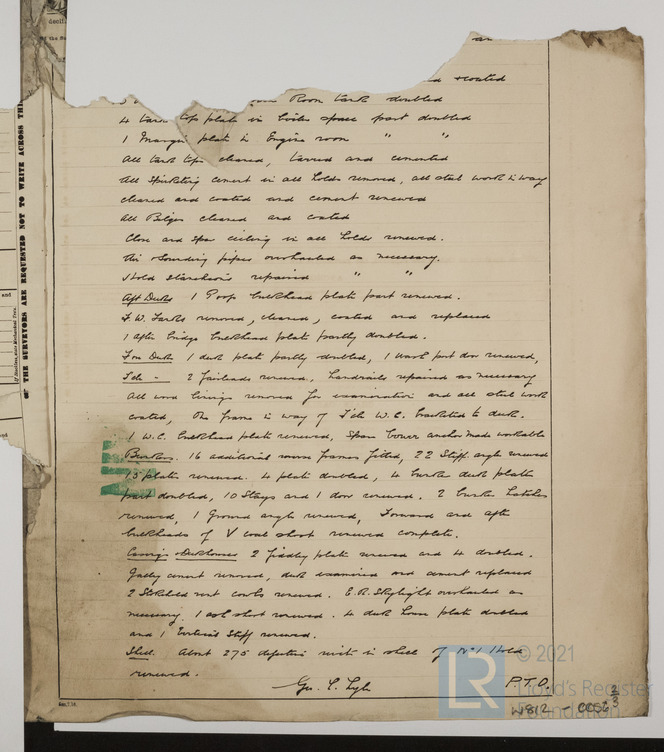 decif
of the Su
and coated
Room tank doubled
4 tank top plates in boiler space part doubled
1 Margin plate in Engine room " "
All tank tops cleared, tarred and cemented
All Spirketing cement in all holds removed, all steel work in way
cleared and coated and cement renewed
All Bilges cleared and coated
Close and Spar ceiling in all holds renewed.
Air & Sounding pipes overhauled as necessary.
Hold Stanchions repaired " "
Aft Deck 1 Poop bulkhead plate part renewed.
F.W. Tanks removed, cleared, coated and replaced
1 after bridge bulkhead plate partly doubled.
Fore Deck 1 deck plate partly doubled, 1 wash port door renewed,
F'cle - 2 fairleads renewed, handrails repaired as necessary
All wood linings removed for examination and all steel work
coated, One frame in way of F'cle W.C. bracketed to deck.
1 W.C. bulkhead plate renewed, Spare bower anchor made workable
Bunkers. 16 additional frames fitted, 22 Stiff. angles renewed
15 plates renewed. 4 plates doubled, 4 bunker deck plates
part doubled, 10 Stays and 1 door renewed. 2 bunker hatches
renewed, 1 Ground angle renewed, Forward and after
bulkheads of V coal shoot renewed complete.
Casings & Deckhouses 2 fiddley plates renewed and 4 doubled.
Galley cement removed, deck examined and cement replaced
2 Stokehold vent cowls renewed. E.R. Skylight overhauled as
necessary. 1 ash shoot renewed. 4 deck house plates doubled
and 1 Stiff renewed.
Shell. About 275 defective rivets in shell of No 1 Hold
renewed.
Geo. C. Lyle
P.T.O.
OF THE SURVEYORS ARE REQUESTED NOT TO WRITE ACROSS THI
and
© 2021
LR
Lloyd's Register
Foundation
W812 - 0056 2/3